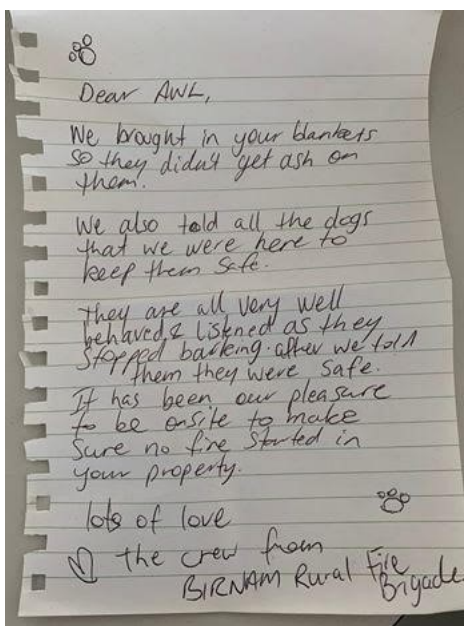 Dear AWL,
We brought in your blankets
so they didn't get ash on
them.
We also told all the dogs
that we were here to
keep them safe.
They are all very well
behaved & listened as they
stopped barking after we told
them they were safe.
It has been our pleasure
to be onsite to make
sure no fire started in
your property.
lots of love
the crew from
BIRNAM Rural Fire
Brigade